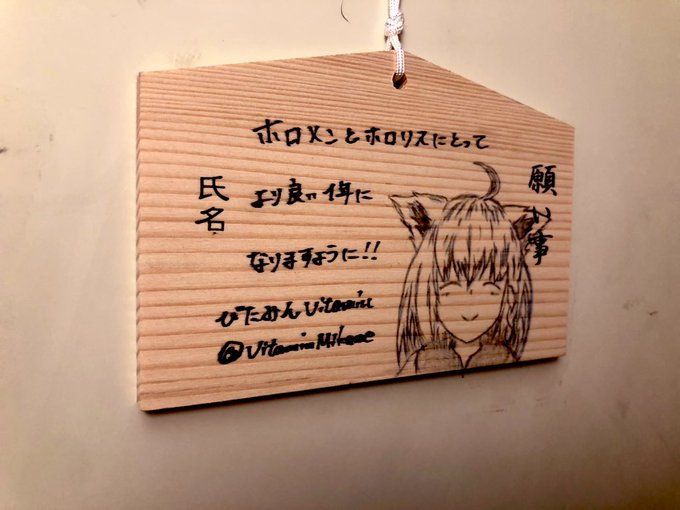 願い事
ホロメンとホロリスにとって
より良い1年に
なりますように!!
氏名
びたみんVitamin
@VitaminMikeee